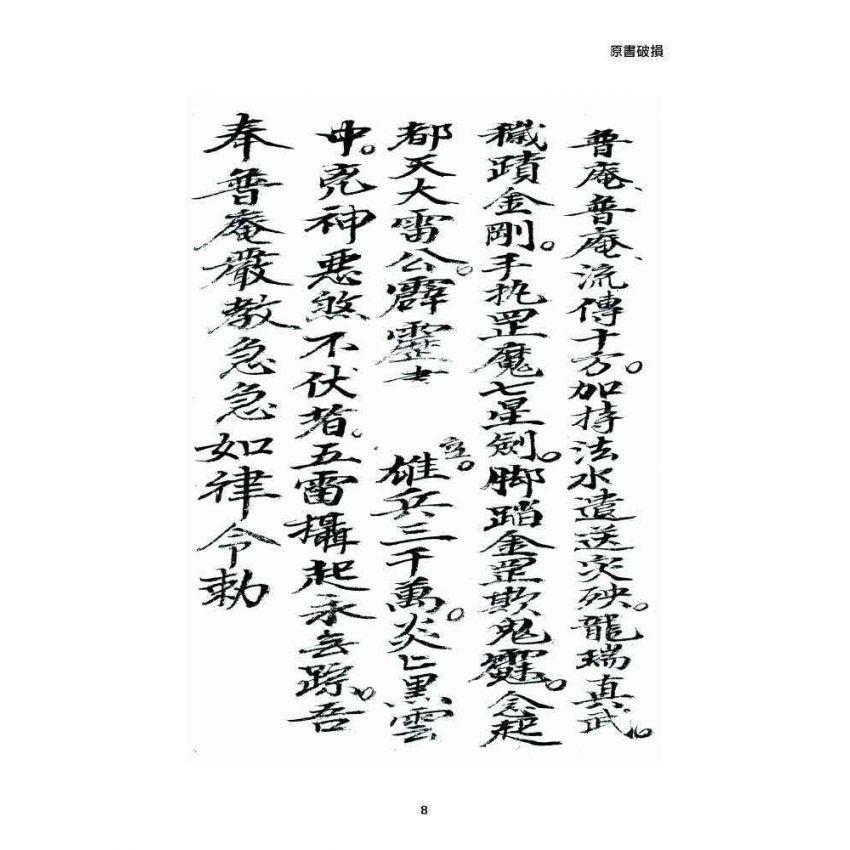 原書破損
普庵、普庵、流傳十方。加持法水遣送灾殃。龍瑞真武。
穢蹟金剛。手执罡魔七星劍。脚踏金罡欺鬼霊。念起
都天大雷公。霹靂 雄兵三千萬。炎〻黑雲
中。兇神惡煞不伏者。五雷攝起永無踪。吾
奉普庵嚴教急急如律令勅
8